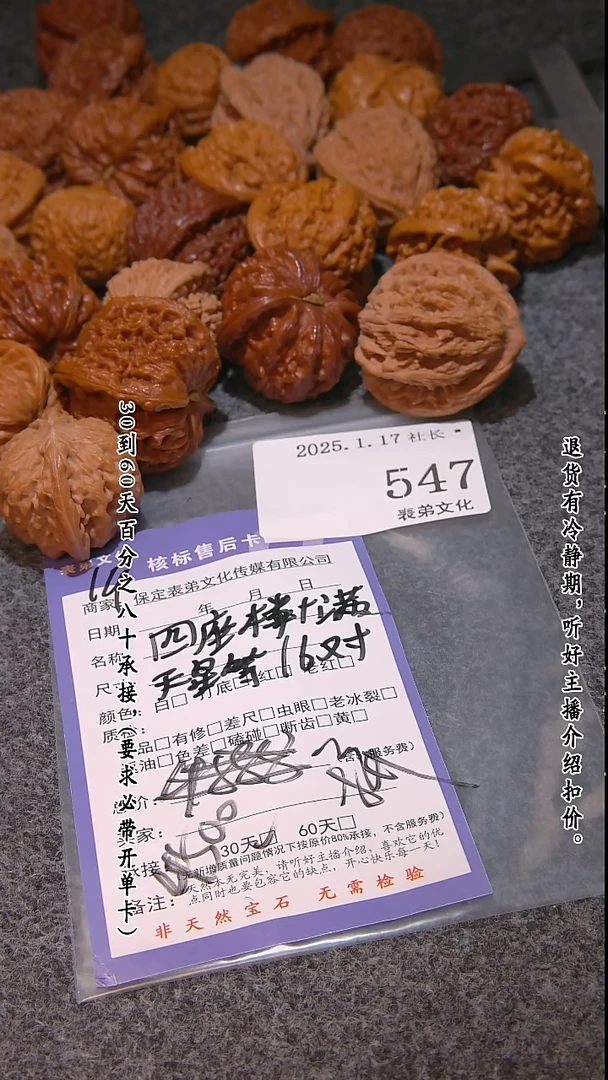 30到60天百分之八十承接，（要求必带开单卡）
退货有冷静期，听好主播介绍扣价。
2025.1.17 社长
547
裱弟文化
核标售后卡
保定裱弟文化传媒有限公司
日期 年 月 日
名称 四座楼
天星等16对
颜色 白□ 打底□ 红□ 老红□
品□有修□差尺□虫眼□老冰裂□
油□色差□磕碰□断齿□黄□
服务费）
30天☑ 60天□
无新增质量问题情况下按原价80%承接，不含服务费）
备注：天然本无完美，请听好主播介绍，喜欢它的优
点同时也要包容它的缺点，开心快乐每一天！
非天然宝石 无需检验